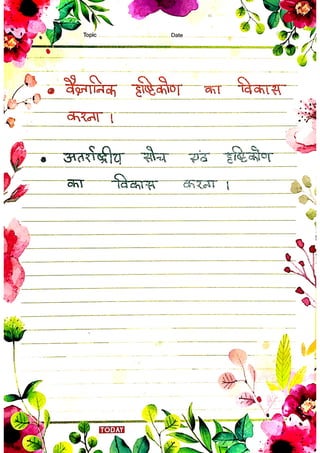 Topic Date
• वैज्ञानिक दृष्टिकोण का विकास
करना ।
• अतर्राष्ट्रीय सोच एंव दृष्टिकोण
का विकास करना ।
TODAY